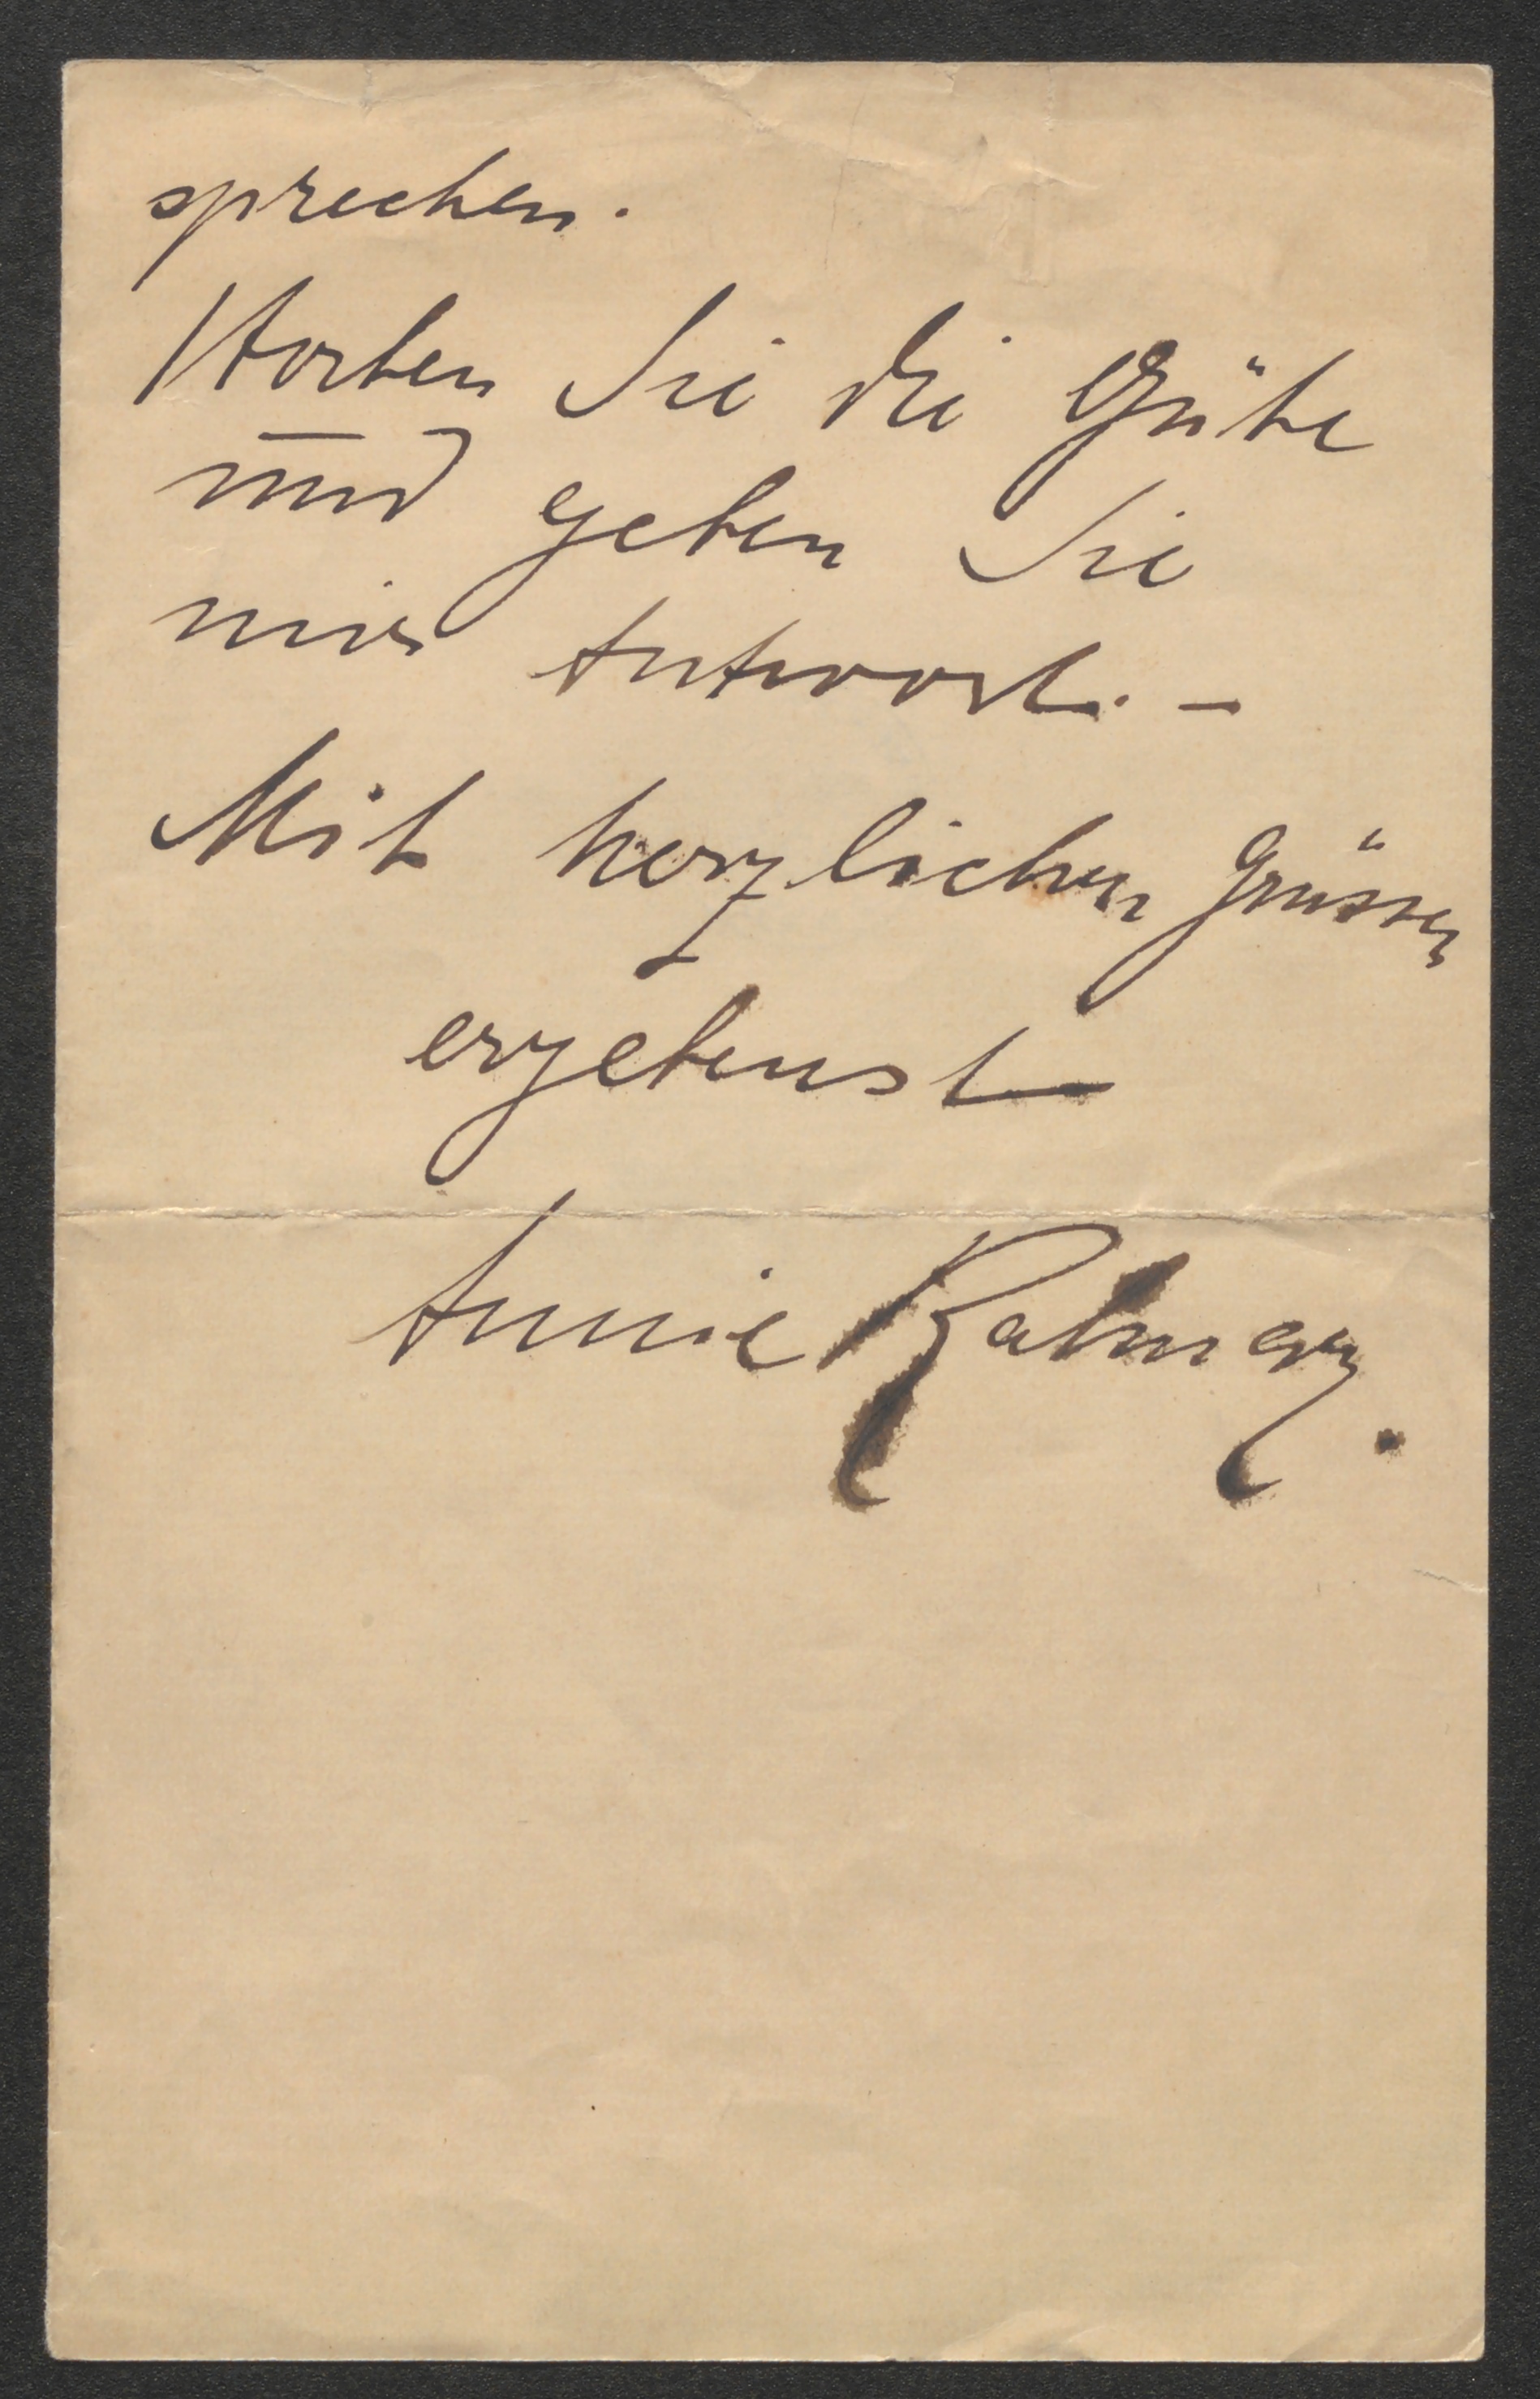 sprechen.
Haben Sie die Güte
und geben Sie
mir Antwort. –
Mit herzlichen Grüssen
ergebenst
Annie Kalmar.